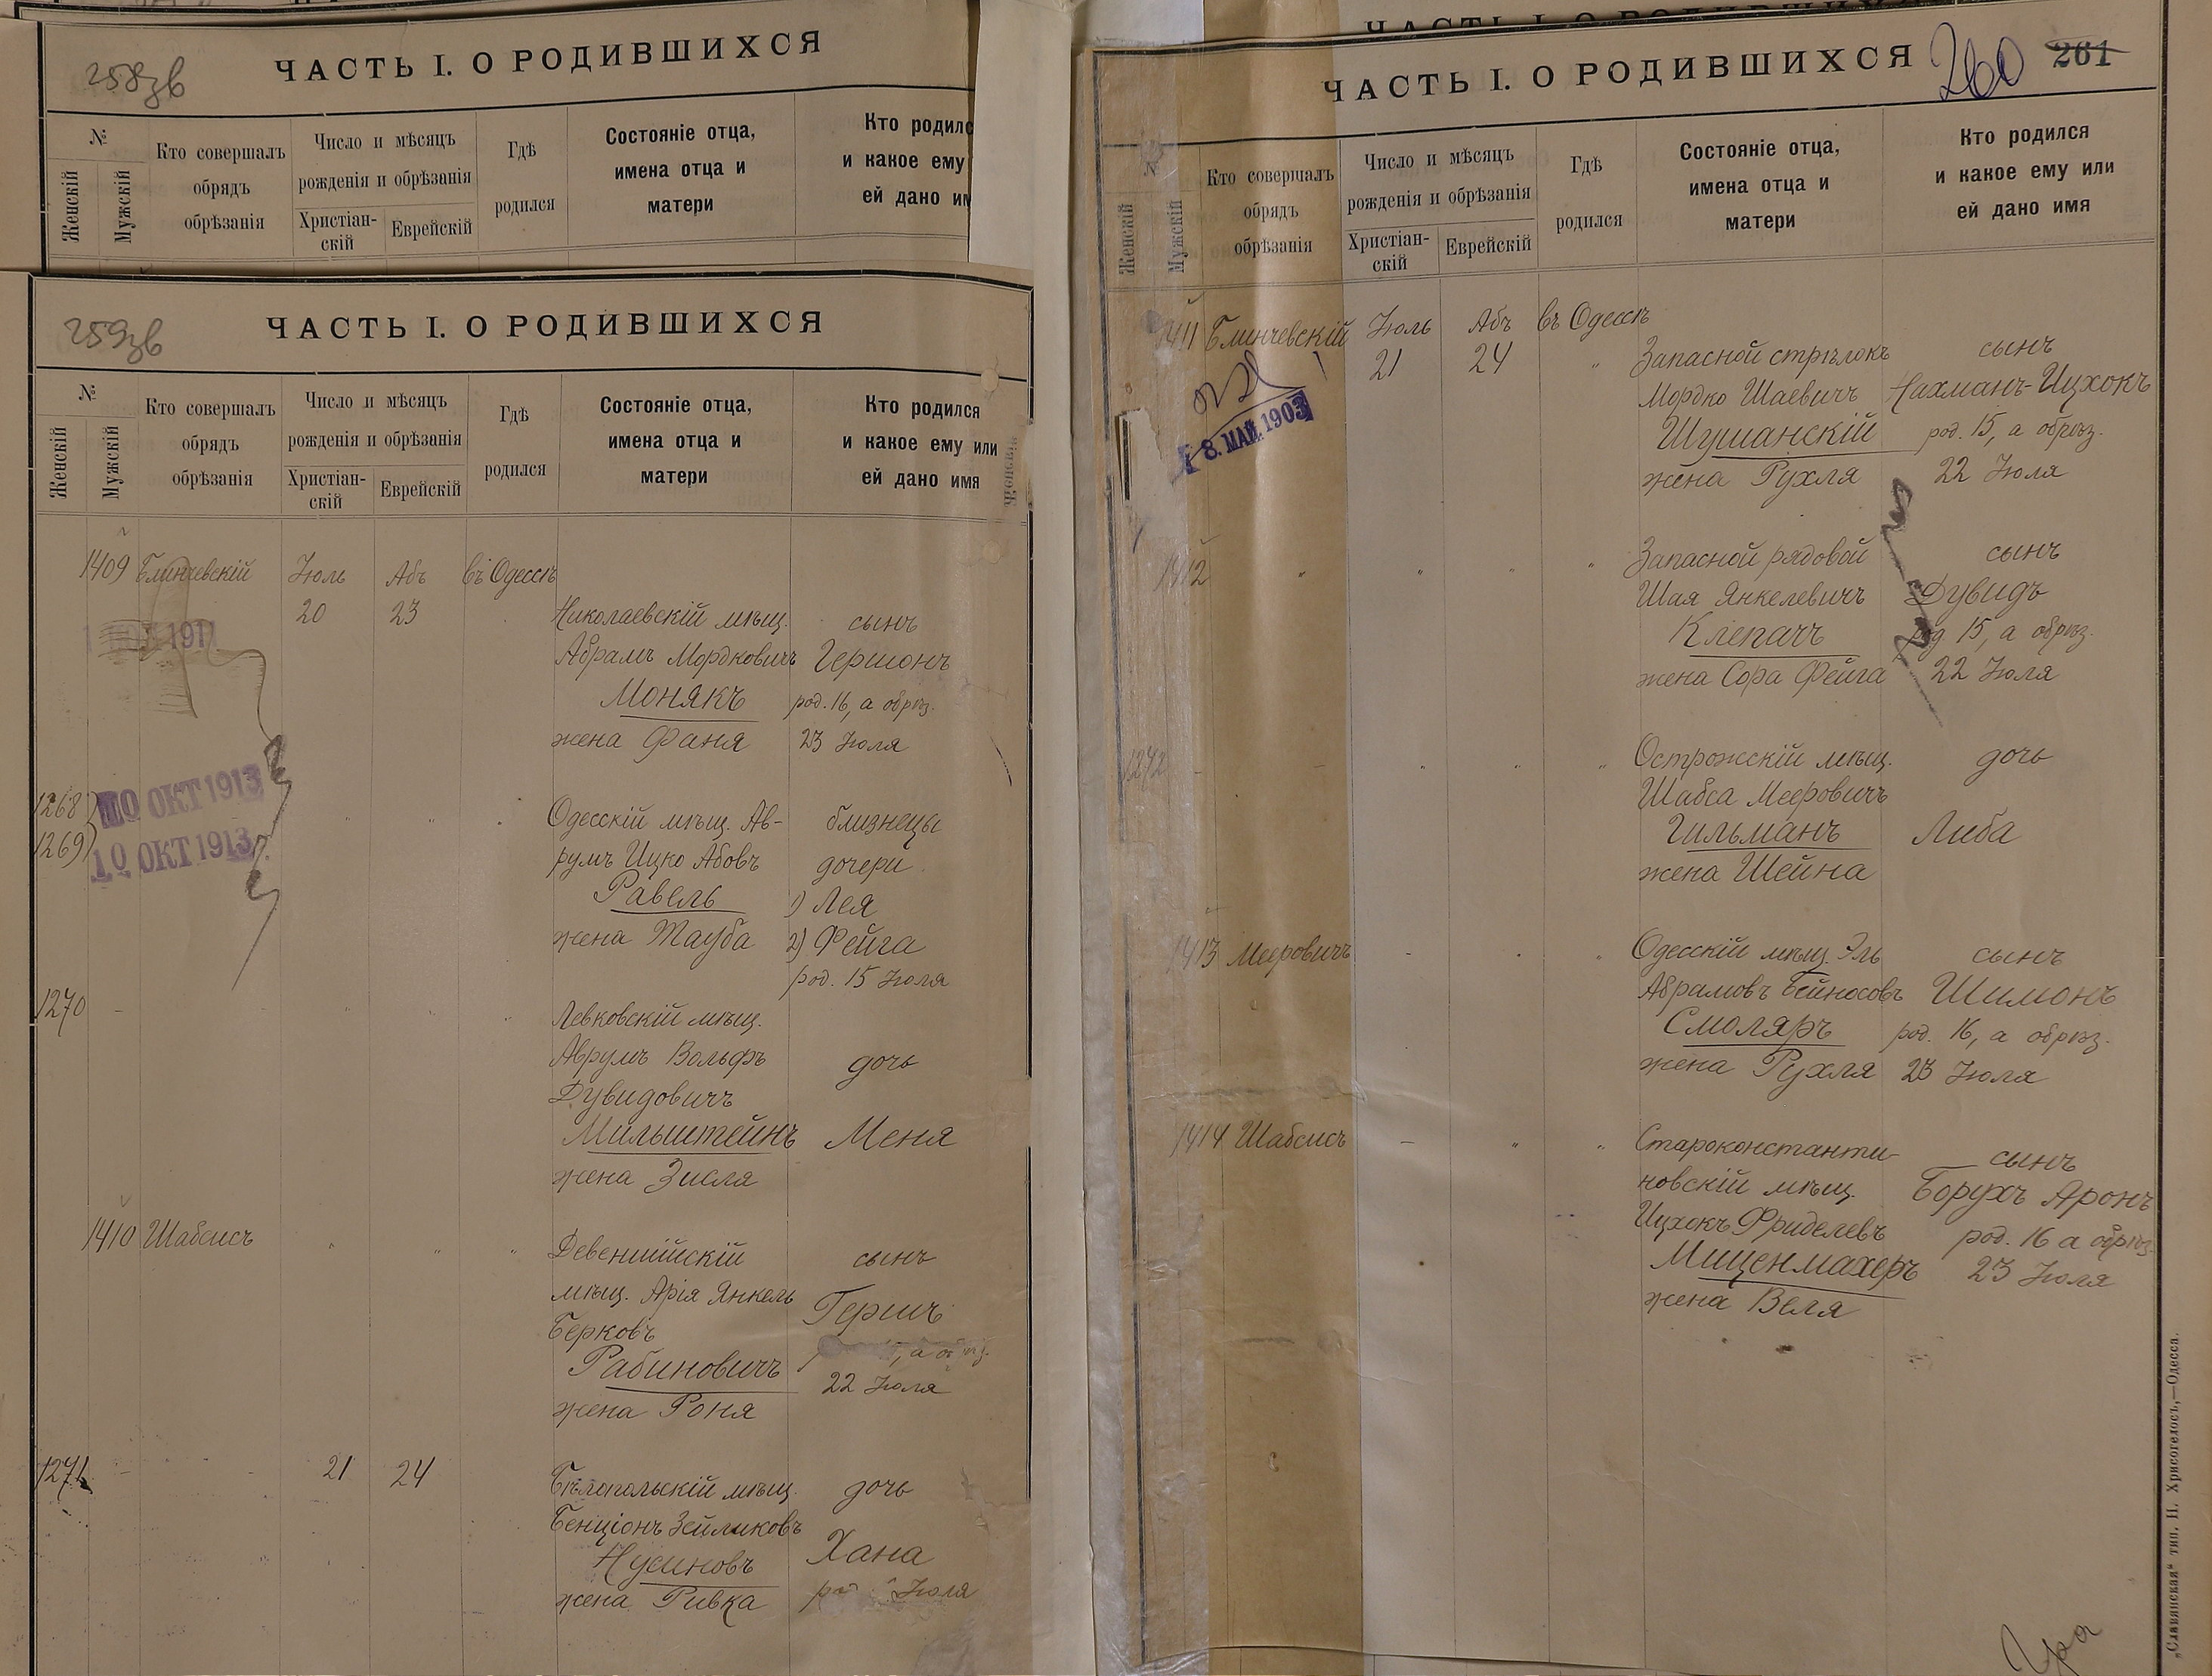 258зв
ЧАСТЬ I. О РОДИВШИХСЯ
№
Женскій
Мужскій
Кто совершалъ
обрядъ
обрѣзанія
Число и мѣсяцъ
рожденія и обрѣзанія
Христіан-
скій
Еврейскій
Гдѣ
родился
Состояніе отца,
имена отца и
матери
Кто родилс
и какое ему
ей дано им
259зв
ЧАСТЬ I. О РОДИВШИХСЯ
№
Женскій
Мужскій
Кто совершалъ
обрядъ
обрѣзанія
Число и мѣсяцъ
рожденія и обрѣзанія
Христіан-
скій
Еврейскій
Гдѣ
родился
Состояніе отца,
имена отца и
матери
Кто родился
и какое ему или
ей дано имя
1409 Блинчевскій Іюль Абъ въ Одессѣ
20 23 Николаевскій мѣщ. сынъ
1911
Абрамъ Мордковичъ Гершонъ
Монякъ род. 16, а обрѣз.
жена Фаня 23 Іюля
1268 10 ОКТ 1913 Одесскій мѣщ. Ав- близнецы
1269 10 ОКТ 1913 румъ Ицко Абовъ дочери
Равель 1) Лея
жена Тауба 2) Фейга
род. 15 Іюля
1270 Левковскій мѣщ.
Аврумъ Вольфъ дочь
Дувидовичъ
Мильштейнъ Меня
жена Зисля
1410 Шабсисъ Девенишійскій сынъ
мѣщ. Арія Янкель Гершъ
Берковъ
Рабиновичъ , а обрѣз.
22 Іюля
жена Роня
1271 21 24 Бѣлопольскій мѣщ. дочь
Бенціонъ Зейликовъ
Нусиновъ Хана
жена Ривка род Іюля
ЧАСТЬ I. О РОДИВШИХСЯ 260 261
№
Женскій
Мужскій
Кто совершалъ
обрядъ
обрѣзанія
Число и мѣсяцъ
рожденія и обрѣзанія
Христіан-
скій
Еврейскій
Гдѣ
родился
Состояніе отца,
имена отца и
матери
Кто родился
и какое ему или
ей дано имя
1411 Блинчевскій Іюль Абъ въ Одессѣ
21 24 " Запасной стрѣлокъ сынъ
8. МАЙ 1903
Мордко Шаевичъ Нахманъ-Ицхокъ
Шушанскій род. 15, а обрѣз.
жена Рухля 22 Іюля
1412 " " " " Запасной рядовой сынъ
Шая Янкелевичъ Дувидъ
Клепачъ род 15, а обрѣз.
жена Сора Фейга 22 Іюля
1272 - - " " " Острожскій мѣщ. дочь
Шабса Мееровичъ
Гильманъ Либа
жена Шейна
1413 Мееровичъ - " " Одесскій мѣщ. Эль сынъ
Абрамовъ Бейносовъ Шимонъ
Смоляръ род. 16, а обрѣз.
жена Рухля 23 Іюля
1414 Шабсисъ - " " Староконстанти- сынъ
новскій мѣщ. Борухъ Аронъ
Ицхокъ Фриделевъ род. 16 а обрѣз.
Миценмахеръ 23 Іюля
жена Веля
„Славянская“ тип. Н. Хрисогелосъ,—Одесса.